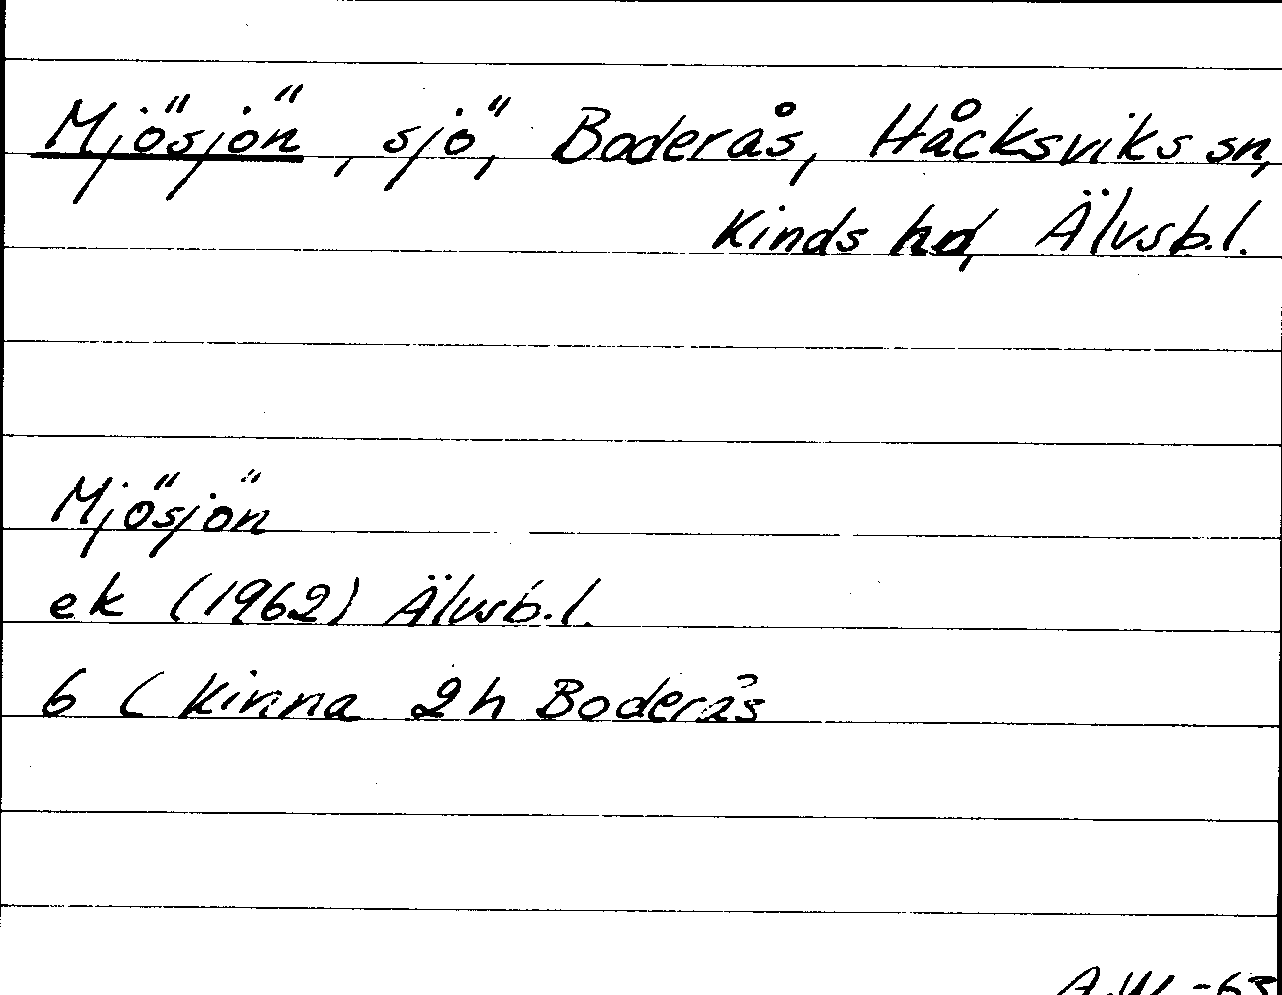 Mjösjön, sjö, Boderås, Håcksviks sn,
Kinds hd, Älvsb.l.
Mjösjön
ek (1962) Älvsb.l.
6 ( Kinna 2h Boderås
A.W. -63